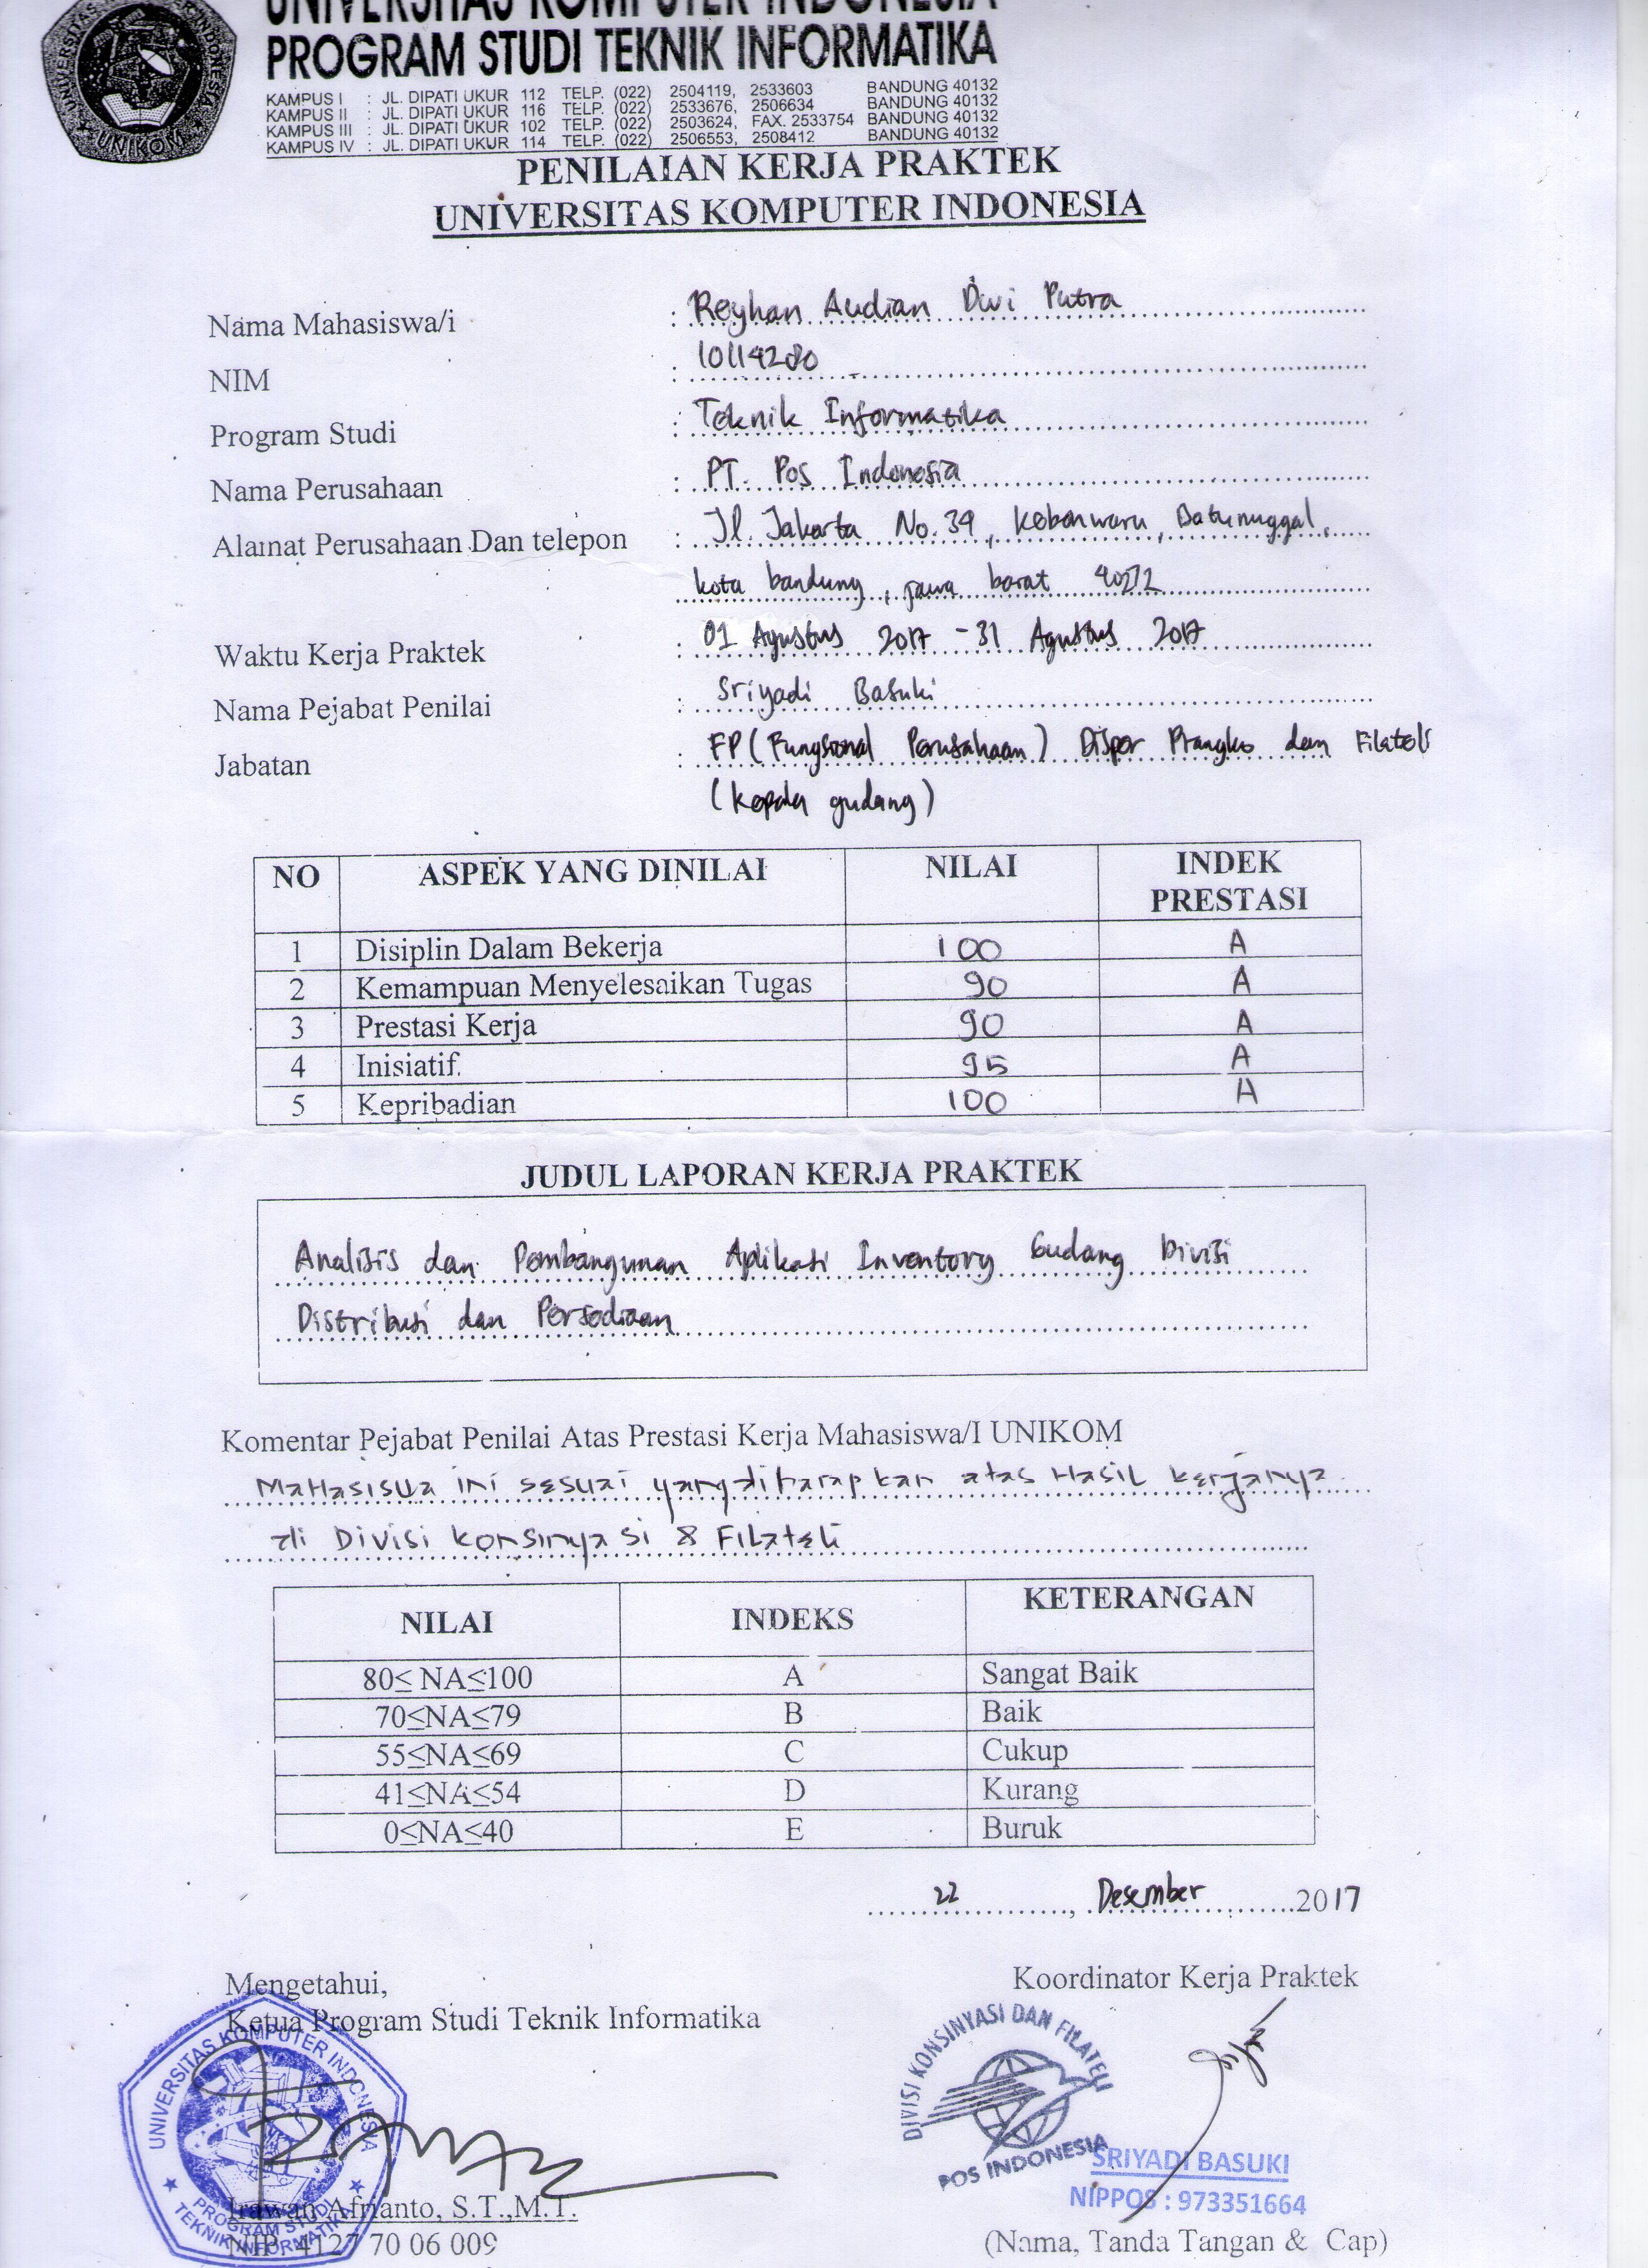 UNIVERSITAS KOMPUTER INDONESIA
PROGRAM STUDI TEKNIK INFORMATIKA
KAMPUS I : JL. DIPATI UKUR 112 TELP. (022) 2504119, 2533603 BANDUNG 40132
KAMPUS II : JL. DIPATI UKUR 116 TELP. (022) 2533676, 2506634 BANDUNG 40132
KAMPUS III : JL. DIPATI UKUR 102 TELP. (022) 2503624, FAX. 2533754 BANDUNG 40132
KAMPUS IV : JL. DIPATI UKUR 114 TELP. (022) 2506553, 2508412 BANDUNG 40132
UNIKOM
PENILAIAN KERJA PRAKTEK
UNIVERSITAS KOMPUTER INDONESIA
Nama Mahasiswa/i : Reyhan Audian Dwi Putra
NIM : 10114280
Program Studi : Teknik Informatika
Nama Perusahaan : PT. Pos Indonesia
Alamat Perusahaan Dan telepon : Jl. Jakarta No.34, Kebonwaru, Batununggal,
kota bandung, jawa barat 40272
Waktu Kerja Praktek : 01 Agustus 2017 - 31 Agustus 2017
Nama Pejabat Penilai : Sriyadi Basuki
Jabatan : FP (Fungsional Perusahaan) Disper Prangko dan Filateli
(kepala gudang)
NO ASPEK YANG DINILAI NILAI INDEK PRESTASI
1 Disiplin Dalam Bekerja 100 A
2 Kemampuan Menyelesaikan Tugas 90 A
3 Prestasi Kerja 90 A
4 Inisiatif 95 A
5 Kepribadian 100 A
JUDUL LAPORAN KERJA PRAKTEK
Analisis dan Pembangunan Aplikasi Inventory Gudang Divisi
Distribusi dan Persediaan
Komentar Pejabat Penilai Atas Prestasi Kerja Mahasiswa/I UNIKOM
Mahasiswa ini sesuai yang diharapkan atas Hasil kerjanya
di Divisi konsinyasi & Filateli
NILAI INDEKS KETERANGAN
80≤ NA≤100 A Sangat Baik
70≤NA≤79 B Baik
55≤NA≤69 C Cukup
41≤NA≤54 D Kurang
0≤NA≤40 E Buruk
22, Desember 2017
Mengetahui,
Ketua Program Studi Teknik Informatika
Koordinator Kerja Praktek
UNIVERSITAS KOMPUTER INDONESIA
PROGRAM STUDI
TEKNIK INFORMATIKA
DIVISI KONSINYASI DAN FILATELI
POS INDONESIA
SRIYADI BASUKI
NIPPOS : 973351664
Irawan Afrianto, S.T.,M.T.
NIP. 4127 70 06 009
(Nama, Tanda Tangan & Cap)